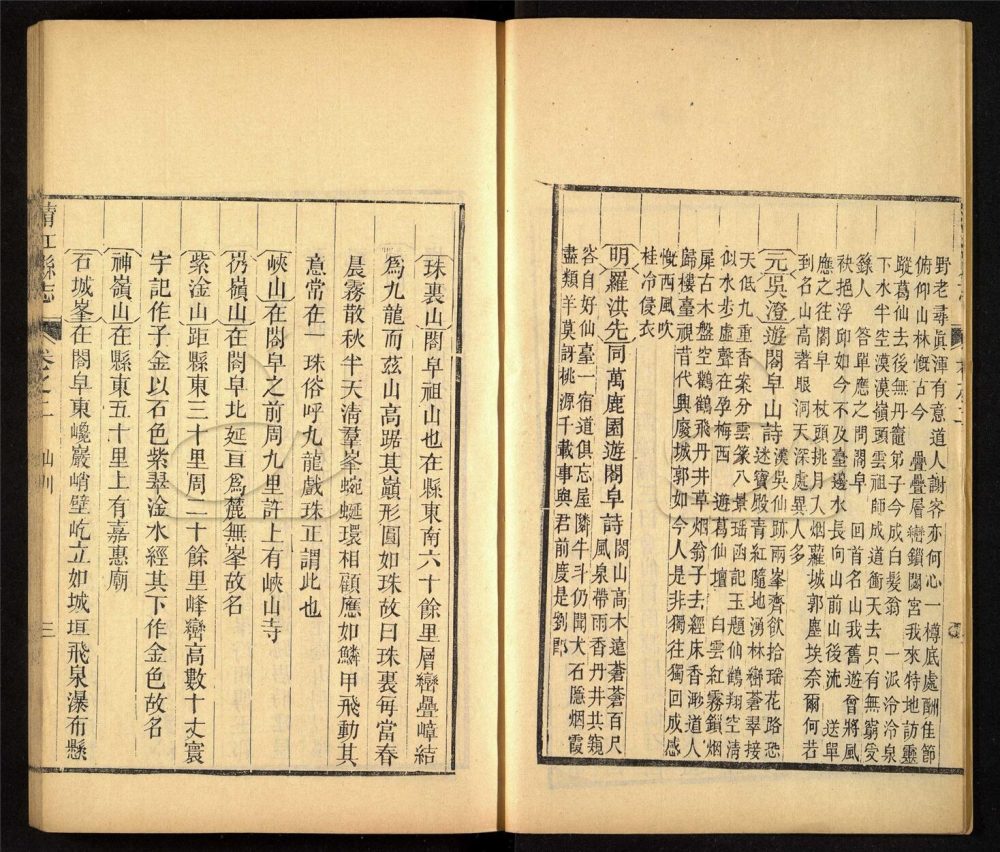 野老尋眞渾有意道人謝客亦何心一樽底處酬佳節
俯仰山林慨古今　疊疊層巒鎖闥宮我來特地訪靈
蹤葛仙去後無丹竈弟子今成白髮翁　一派泠泠泉
下水半空漠漠嶺頭雲祖師成道衝天去只有無窮受
籙人　答單應之問閤皁　回首名山我舊遊曾將風
袂挹浮邱如今不及臺邊水長向山前山後流　送單
應之往閤皁　杖頭挑月入烟蘿城郭塵埃奈爾何若
到名山高著眼洞天深處異人多
元吳澄遊閤皁山詩漢吳仙跡兩峯齊欲拾瑤花路恐
迷寶殿青紅隨地湧林巒蒼翠接
天低九重香案分雲篆八景瑶函記玉題仙鶴翔空清
似水步虛聲在孕梅西　遊葛仙壇　白雲紅霧鎖烟
屏古木盤空鸛鶴飛丹井草烟翁子去經床香渺道人
歸樓臺視昔代興廢城郭如今人是非獨往獨回成感
慨西風吹
桂冷侵衣
明羅洪先同萬鹿園遊閤皁詩閤山高木遠蒼蒼百尺
風泉帶雨香丹井共窺
咎自好仙臺一宿道俱忘屋隣牛斗仍聞犬石隱烟霞
盡類羊莫訝桃源千載事與君前度是劉郎
珠裏山閤皁祖山也在縣東南六十餘里層巒疊嶂結
爲九龍而茲山高踞其巔形圓如珠故曰珠裏毎當春
晨霧散秋半天清羣峯蜿蜒環相顧應如鱗甲飛動其
意常在一珠俗呼九龍戲珠正謂此也
峽山在閤皁之前周九里許上有峽山寺
嶺山在閤皁北延亘爲麓無峯故名
紫淦山距縣東三十里周二十餘里峰巒高數十丈寰
宇記作子金以石色紫淦水經其下作金色故名
神嶺山在縣東五十里上有嘉惠廟
石城峯在閤皁東巉巖峭壁屹立如城垣飛泉瀑布懸
清江縣志
卷之二
山川
三